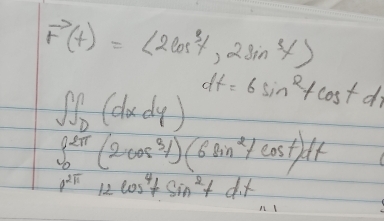 r⃗(t) = ⟨2cos³t, 2sin³t⟩
dt = 6 sin²t cost dt
∬_D (dxdy)
∫₀^2π (2cos³t)(6sin²t cost)dt
∫^2π 12 cos⁴t sin²t dt